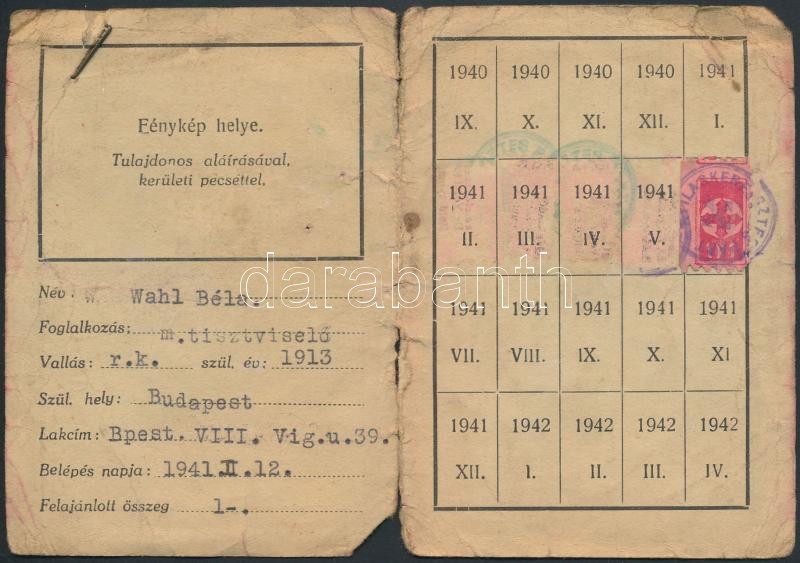 Fénykép helye.
Tulajdonos aláírásával,
kerületi pecséttel.
Név: Wahl Béla.
Foglalkozás: m.tisztviselő
Vallás: r.k. szül. év: 1913
Szül. hely: Budapest
Lakcím: Bpest. VIII. Vig.u.39.
Belépés napja: 1941.II.12.
Felajánlott összeg 1-.
1940 1940 1940 1940 1941
IX. X. XI. XII. I.
1941 1941 1941 1941
II. III. IV. V.
1941 1941 1941 1941 1941
VII. VIII. IX. X. XI
1941 1942 1942 1942 1942
XII. I. II. III. IV.
darabanth